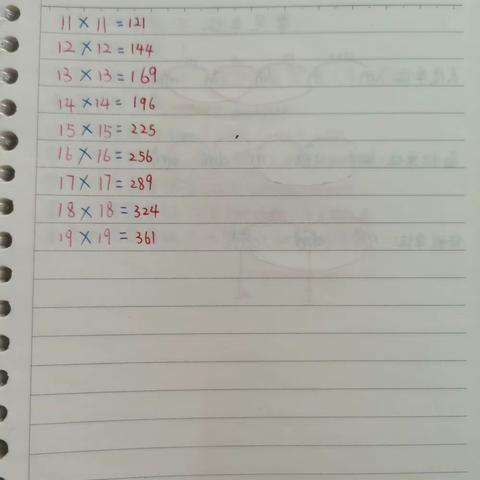 11 × 11 = 121
12 × 12 = 144
13 × 13 = 169
14 × 14 = 196
15 × 15 = 225
16 × 16 = 256
17 × 17 = 289
18 × 18 = 324
19 × 19 = 361